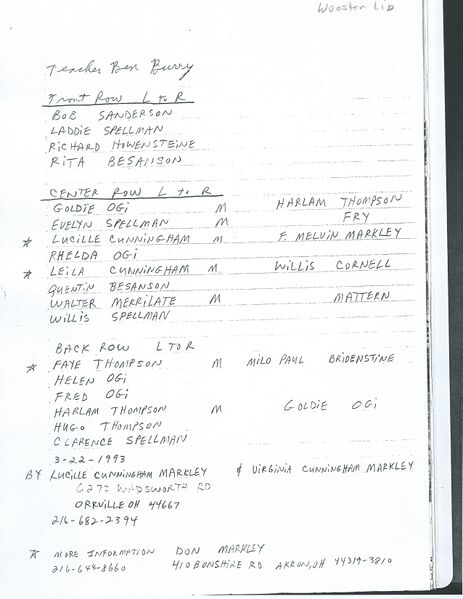 Wooster Lib
Teacher Ben Burry
Front Row L to R
BOB SANDERSON
LADDIE SPELLMAN
RICHARD HOWENSTEINE
RITA BESANSON
CENTER ROW L to R
GOLDIE OGI M HARLAM THOMPSON
EVELYN SPELLMAN M FRY
* LUCILLE CUNNINGHAM M F. MELVIN MARKLEY
RHELDA OGI
* LEILA CUNNINGHAM M WILLIS CORNELL
QUENTIN BESANSON
WALTER MERRILATE M MATTERN
WILLIS SPELLMAN
BACK ROW L TO R
* FAYE THOMPSON M MILO PAUL BRIDENSTINE
HELEN OGI
FRED OGI
HARLAM THOMPSON M GOLDIE OGI
HUGO THOMPSON
CLARENCE SPELLMAN
3-22-1993
BY LUCILLE CUNNINGHAM MARKLEY & VIRGINIA CUNNINGHAM MARKLEY
6272 WADSWORTH RD
ORRVILLE OH 44667
216-682-2394
* MORE INFORMATION DON MARKLEY
216-644-8660 410 BONSHIRE RD AKRON, OH 44319-3810